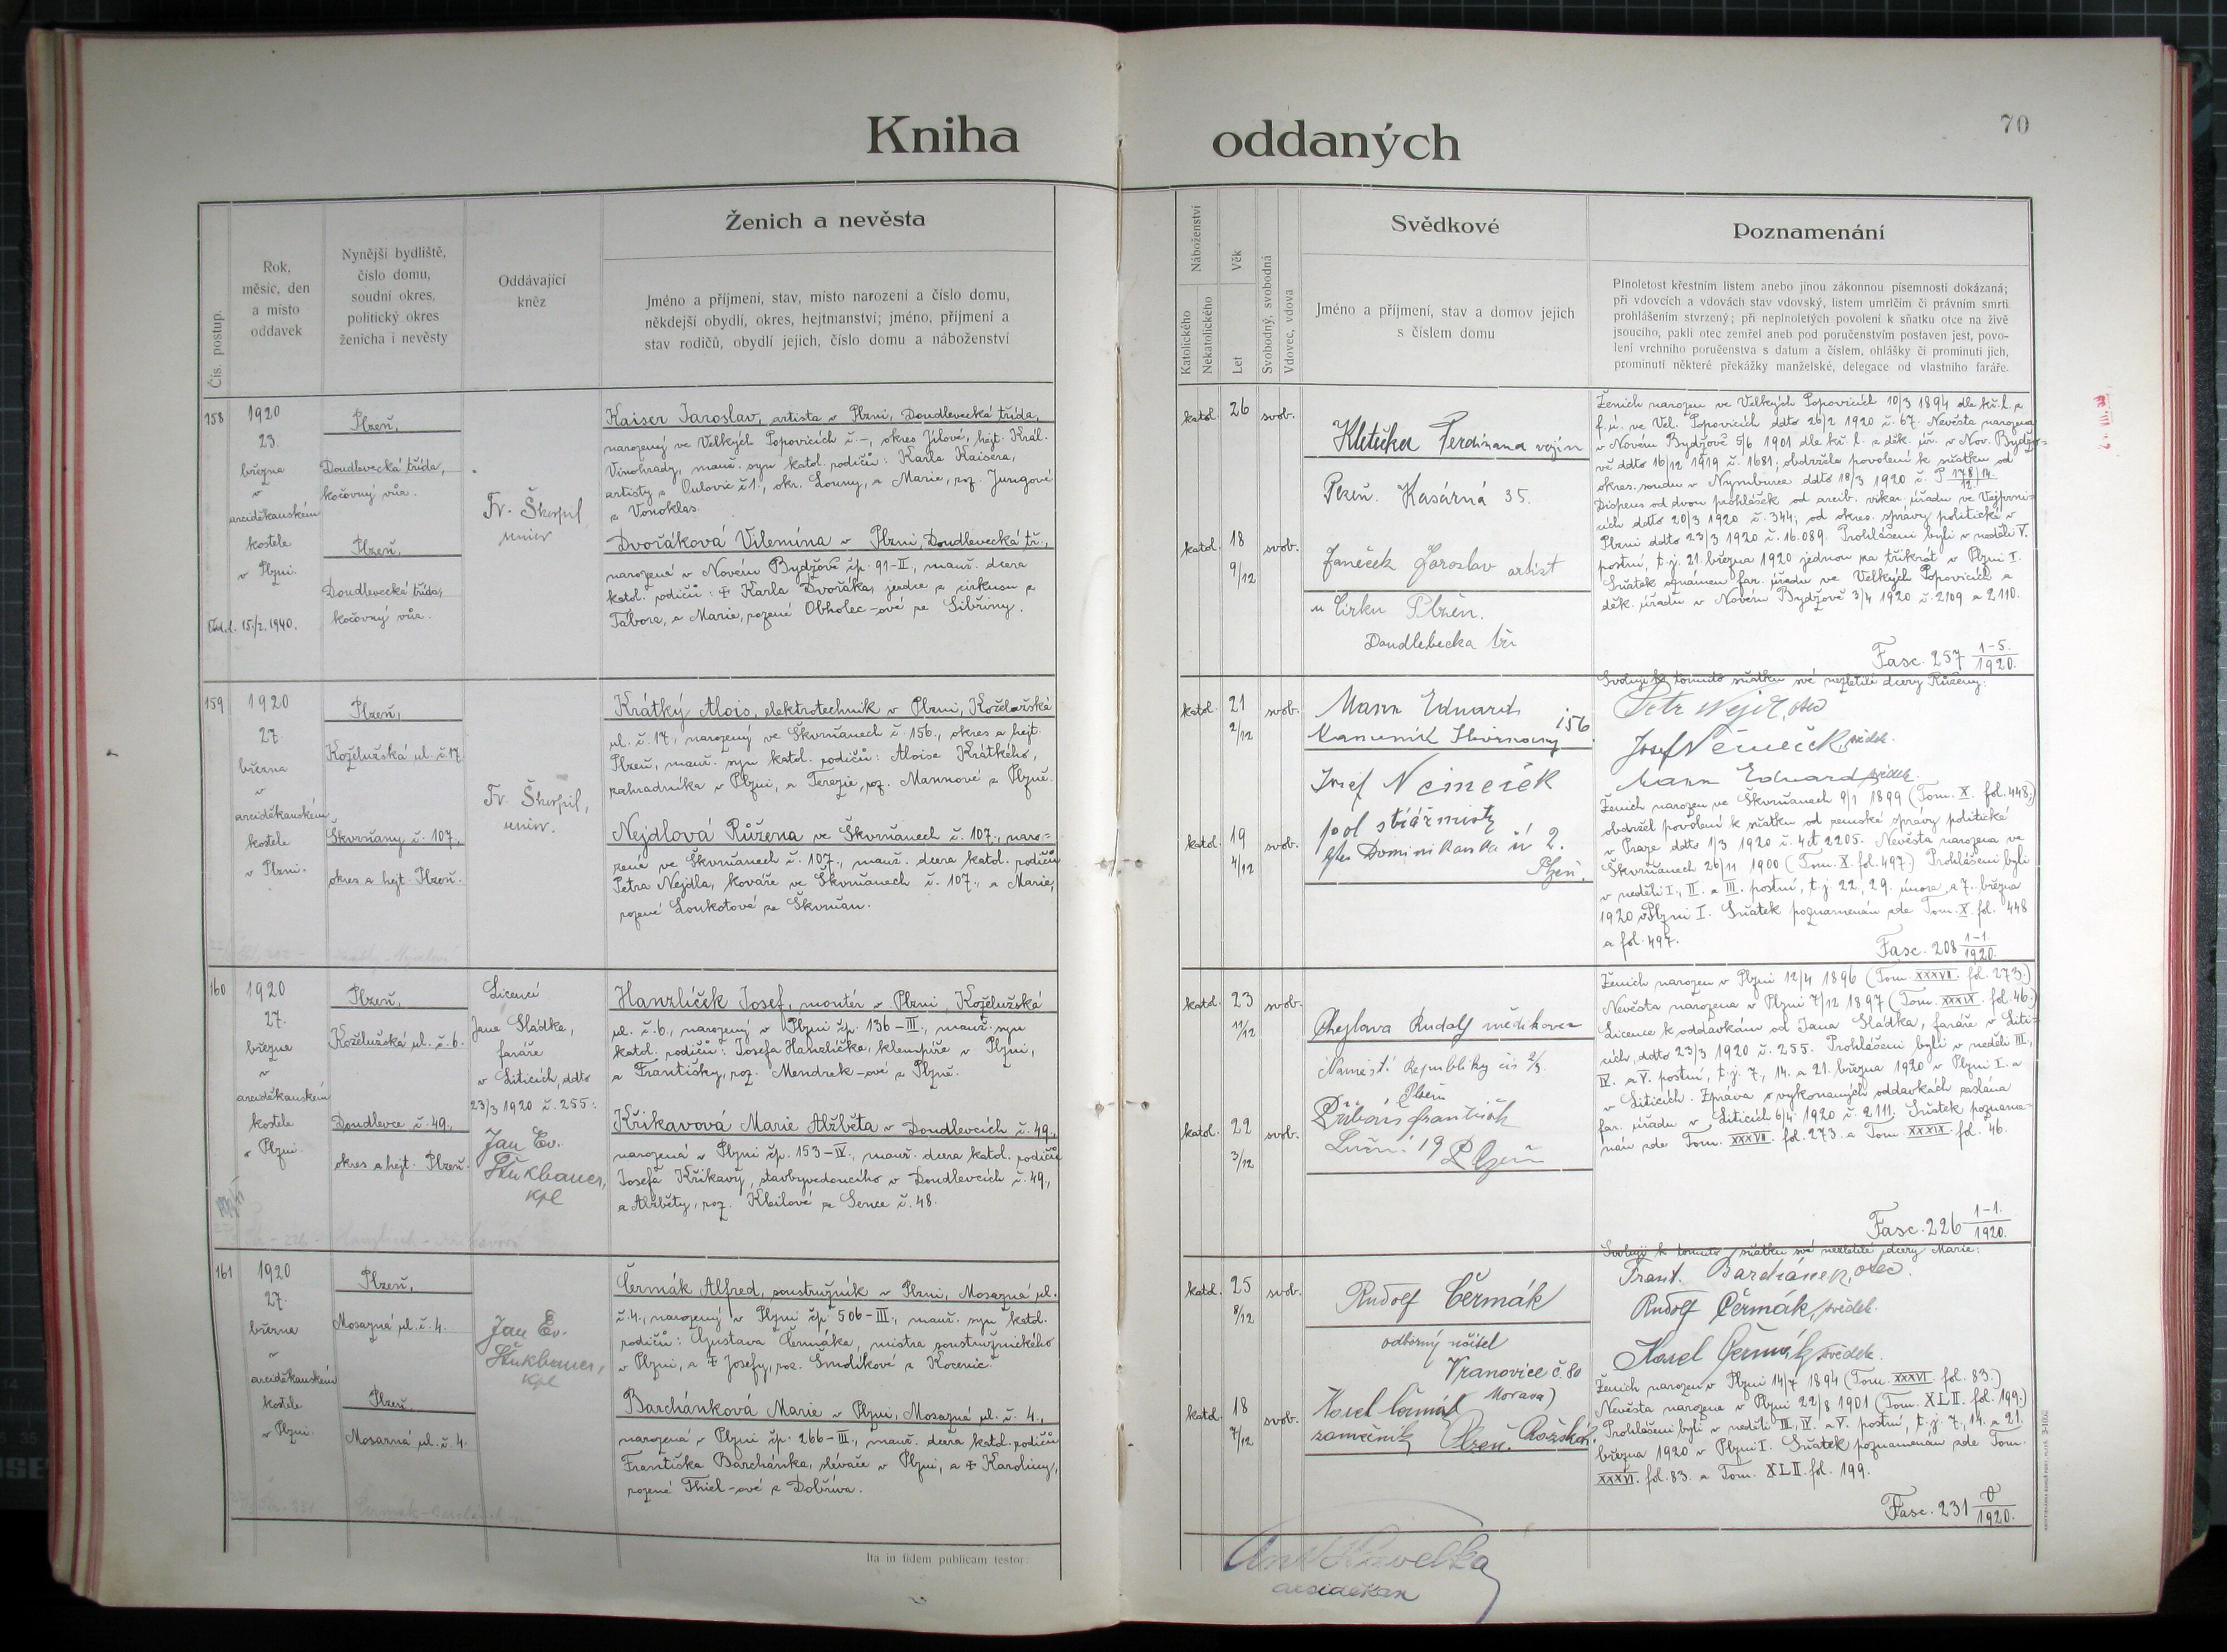 Kniha oddaných
70
Čís. postup.
Rok,
měsíc, den
a místo
oddavek
Nynější bydliště,
číslo domu,
soudní okres,
politický okres
ženicha i nevěsty
Oddávající
kněz
Ženich a nevěsta
Jméno a příjmení, stav, místo narození a číslo domu,
někdejší obydlí, okres, hejtmanství; jméno, příjmení a
stav rodičů, obydlí jejich, číslo domu a náboženství
Náboženství
Katolického
Nekatolického
Věk
Let
Svobodný, svobodná
Vdovec, vdova
Svědkové
Jméno a příjmení, stav a domov jejich
s číslem domu
Poznamenání
Plnoletost křestním listem anebo jinou zákonnou písemností dokázaná;
při vdovcích a vdovách stav vdovský, listem umrlčím či právním smrti
prohlášením stvrzený; při neplnoletých povolení k sňatku otce na živě
jsoucího, pakli otec zemřel aneb pod poručenstvím postaven jest, povo-
lení vrchního poručenstva s datum a číslem, ohlášky či prominutí jich,
prominutí některé překážky manželské, delegace od vlastního faráře.
158
1920
23.
března
v
arciděkanském
kostele
v Plzni.
15/2. 1940.
Plzeň,
Doudlevecká třída,
kočovný vůz.
Plzeň,
Doudlevecká třída,
kočovný vůz.
Fr. Škorpil
Kaiser Jaroslav, artista v Plzni, Doudlevecká třída,
narozený ve Velkých Popovicích č.-, okres Jílové, hejt. Král.
Vinohrady, manž. syn katol. rodičů: Karla Kaisera,
artisty z Oulovic č 1., okr. Louny, a Marie, roz. Jungové
z Vonoklas.
Dvořáková Vilemína v Plzni, Doudlevecká tř.,
narozená v Novém Bydžově čp. 91-II., manž. dcera
katol. rodičů: † Karla Dvořáka, jezdce z cirkusu z
Tábora, a Marie, rozené Obholec-ové ze Libřiny.
katol. 26 svob.
katol. 18 9/12 svob.
Kletička Ferdinand
Plzeň. Kasárná 35.
Janeček Jaroslav artist
u Cirku Plzěn.
Doudlebecka tři
Ženich narozen ve Velkých Popovicích 10/3 1894 dle kř. l. z
f. ú. ve Vel. Popovicích ddto 26/2 1920 č. 67. Nevěsta narozena
v Novém Bydžově 5/6 1901 dle kř. l. z děk. úř. v Nov. Bydžo-
vě ddto 16/12 1919 č. 1681; obdržela povolení k sňatku od
okres. soudu v Nymburce ddto 18/3 1920 č. P 178/14 12.
Dispens od dvou prohlášek od arcib. vikar. úřadu ve Vejprni-
cích ddto 20/3 1920 č. 344; od okres. správy politické v
Plzni ddto 23/3 1920 č. 16.089. Prohlášeni byli v neděli V.
postní, t. j. 21. března 1920 jednou za třikrát v Plzni I.
Sňatek oznámen far. úřadu ve Velkých Popovicích a
děk. úřadu v Novém Bydžově 3/4 1920 č. 2109 a 2110.
Fasc. 257 1-5./1920.
159
1920
27.
března
v
arciděkanském
kostele
v Plzni.
Plzeň,
Koželužská ul. č. 17.
Škvrňany č. 107.,
okres a hejt. Plzeň.
Fr. Škorpil,
Krátký Alois, elektrotechnik v Plzni, Koželužská
ul. č. 17., narozený ve Škvrňanech č. 156., okres a hejt.
Plzeň, manž. syn katol. rodičů: Aloise Krátkého,
zahradníka v Plzni, a Terezie, roz. Mannové z Plzně.
Nejdlová Růžena ve Škvrňanech č. 107., naro-
zené ve Škvrňanech č. 107., manž. dcera katol. rodičů
Petra Nejdla, kováře ve Škvrňanech č. 107., a Marie,
rozené Loukotové ze Škvrňan.
katol. 21 2/12 svob.
katol. 19 4/12 svob.
Mann Eduard
156
Josef Němeček
pol strážmistr
Dominikanska č 2.
Plzeň.
Svoluji k tomuto sňatku své nezletilé dcery Růženy:
Petr Nejdl, otec
Josef Němeček, svědek.
Mann Eduard, svědek.
Ženich narozen ve Škvrňanech 9/1 1899 (Tom. X. fol. 448.);
obdržel povolení k sňatku od zemské správy politické
v Praze ddto 1/3 1920 č. 4 ct 2205. Nevěsta narozena ve
Škvrňanech 26/11 1900 (Tom. X. fol. 497.) Prohlášeni byli
v neděli I., II. a III. postní, t. j. 22., 29. února a 7. března
1920 v Plzni I. Sňatek poznamenán zde Tom. X. fol. 448
a fol. 497.
Fasc. 208 1-1./1920.
160
1920
27.
března
v
arciděkanském
kostele
v Plzni.
Plzeň,
Koželužská ul. č. 6.
Doudlevce č. 49.,
okres a hejt. Plzeň.
Licencí
Jana Sládka,
faráře
v Liticích, ddto
23/3 1920 č. 255:
Jan Ev.
Štukbauer,
kpl
Hanzlíček Josef, montér v Plzni, Koželužská
ul. č. 6., narozený v Plzni čp. 136-III., manž. syn
katol. rodičů: Josefa Hanzlíčka, klempíře v Plzni,
a Františky, roz. Mendrek-ové z Plzně.
Křikavová Marie Alžběta v Doudlevcích č. 49.,
narozená v Plzni čp. 153-IV., manž. dcera katol. rodičů
Josefa Křikavy, stavbyvedoucího v Doudlevcích č. 49.,
a Alžběty, roz. Kbílové ze Sence č. 48.
katol. 23 11/12 svob.
katol. 22 3/12 svob.
Chejlava Rudolf
Náměstí Republiky čís 2/3.
Plzeň
František
Luční 19 Plzeň
Ženich narozen v Plzni 12/4 1896 (Tom. XXXVII. fol. 273.)
Nevěsta narozena v Plzni 7/12 1897 (Tom. XXXIX. fol. 46.)
Licence k oddavkám od Jana Sládka, faráře v Liti-
cích, ddto 23/3 1920 č. 255. Prohlášeni byli v neděli III.,
IV. a V. postní, t. j. 7., 14. a 21. března 1920 v Plzni I. a
v Liticích. Zpráva o vykonaných oddavkách zaslána
far. úřadu v Liticích 6/4 1920 č. 2111. Sňatek pozname-
nán zde Tom. XXXVII. fol. 273. a Tom. XXXIX. fol. 46.
Fasc. 226 1-1./1920.
161
1920
27.
března
v
arciděkanském
kostele
v Plzni.
Plzeň,
Mosazná ul. č. 4.
Plzeň,
Mosazná ul. č. 4.
Jan Ev.
Štukbauer,
kpl
Čermák Alfred, soustružník v Plzni, Mosazná ul.
č. 4., narozený v Plzni čp. 506-III., manž. syn katol.
rodičů: Gustava Čermáka, mistra soustružnického
v Plzni, a † Josefy, roz. Smolíkové z Kozenic.
Barchánková Marie v Plzni, Mosazná ul. č. 4.,
narozená v Plzni čp. 266-III., manž. dcera katol. rodičů
Františka Barchánka, slévače v Plzni, a † Karoliny,
rozené Thiel-ové z Dobříva.
katol. 25 8/12 svob.
katol. 18 7/12 svob.
Rudolf Čermák
odborný učitel
Vranovice č. 80
Morava)
Karel Čermák
zámečník Plzeň.
Svoluji k tomuto sňatku své nezletilé dcery Marie:
Frant. Barchánek, otec.
Rudolf Čermák, svědek.
Karel Čermák, svědek.
Ženich narozen v Plzni 14/7 1894 (Tom. XXXVI. fol. 83.)
Nevěsta narozena v Plzni 22/8 1901 (Tom. XLII. fol. 199.)
Prohlášeni byli v neděli III., IV. a V. postní, t. j. 7., 14. a 21.
března 1920 v Plzni I. Sňatek poznamenán zde Tom.
XXXVI. fol. 83. a Tom. XLII. fol. 199.
Fasc. 231 0/1920.
Ita in fidem publicam testor:
Ant Havelka
arciděkan